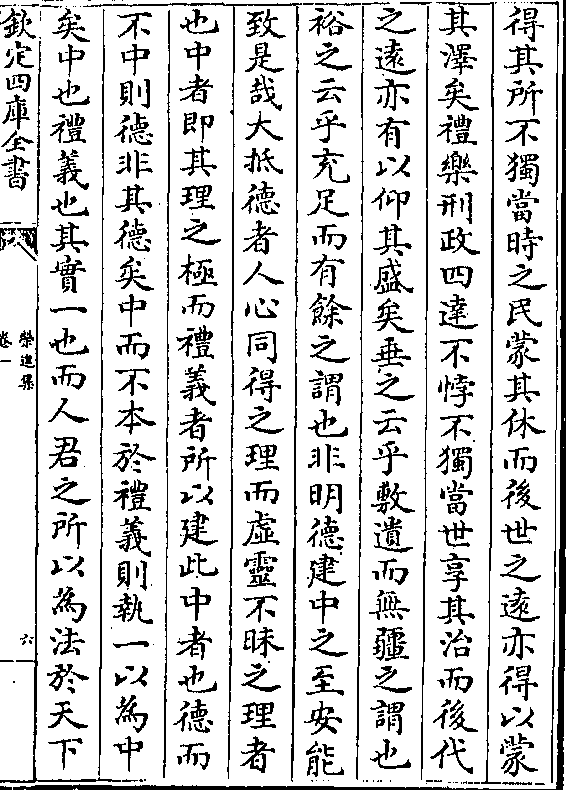 得其所不獨當時之民蒙其休而後世之遠亦得以蒙
其澤矣禮樂刑政四達不悖不獨當世享其治而後代
之遠亦有以仰其盛矣垂之云乎敷遺而無疆之謂也
裕之云乎充足而有餘之謂也非明德建中之至安能
致是哉大抵德者人心同得之理而虛靈不昧之理者
也中者即其理之極而禮義者所以建此中者也德而
不中則德非其德矣中而不本於禮義則執一以為中
矣中也禮義也其實一也而人君之所以為法於天下
欽定四庫全書
榮進集
卷一
六